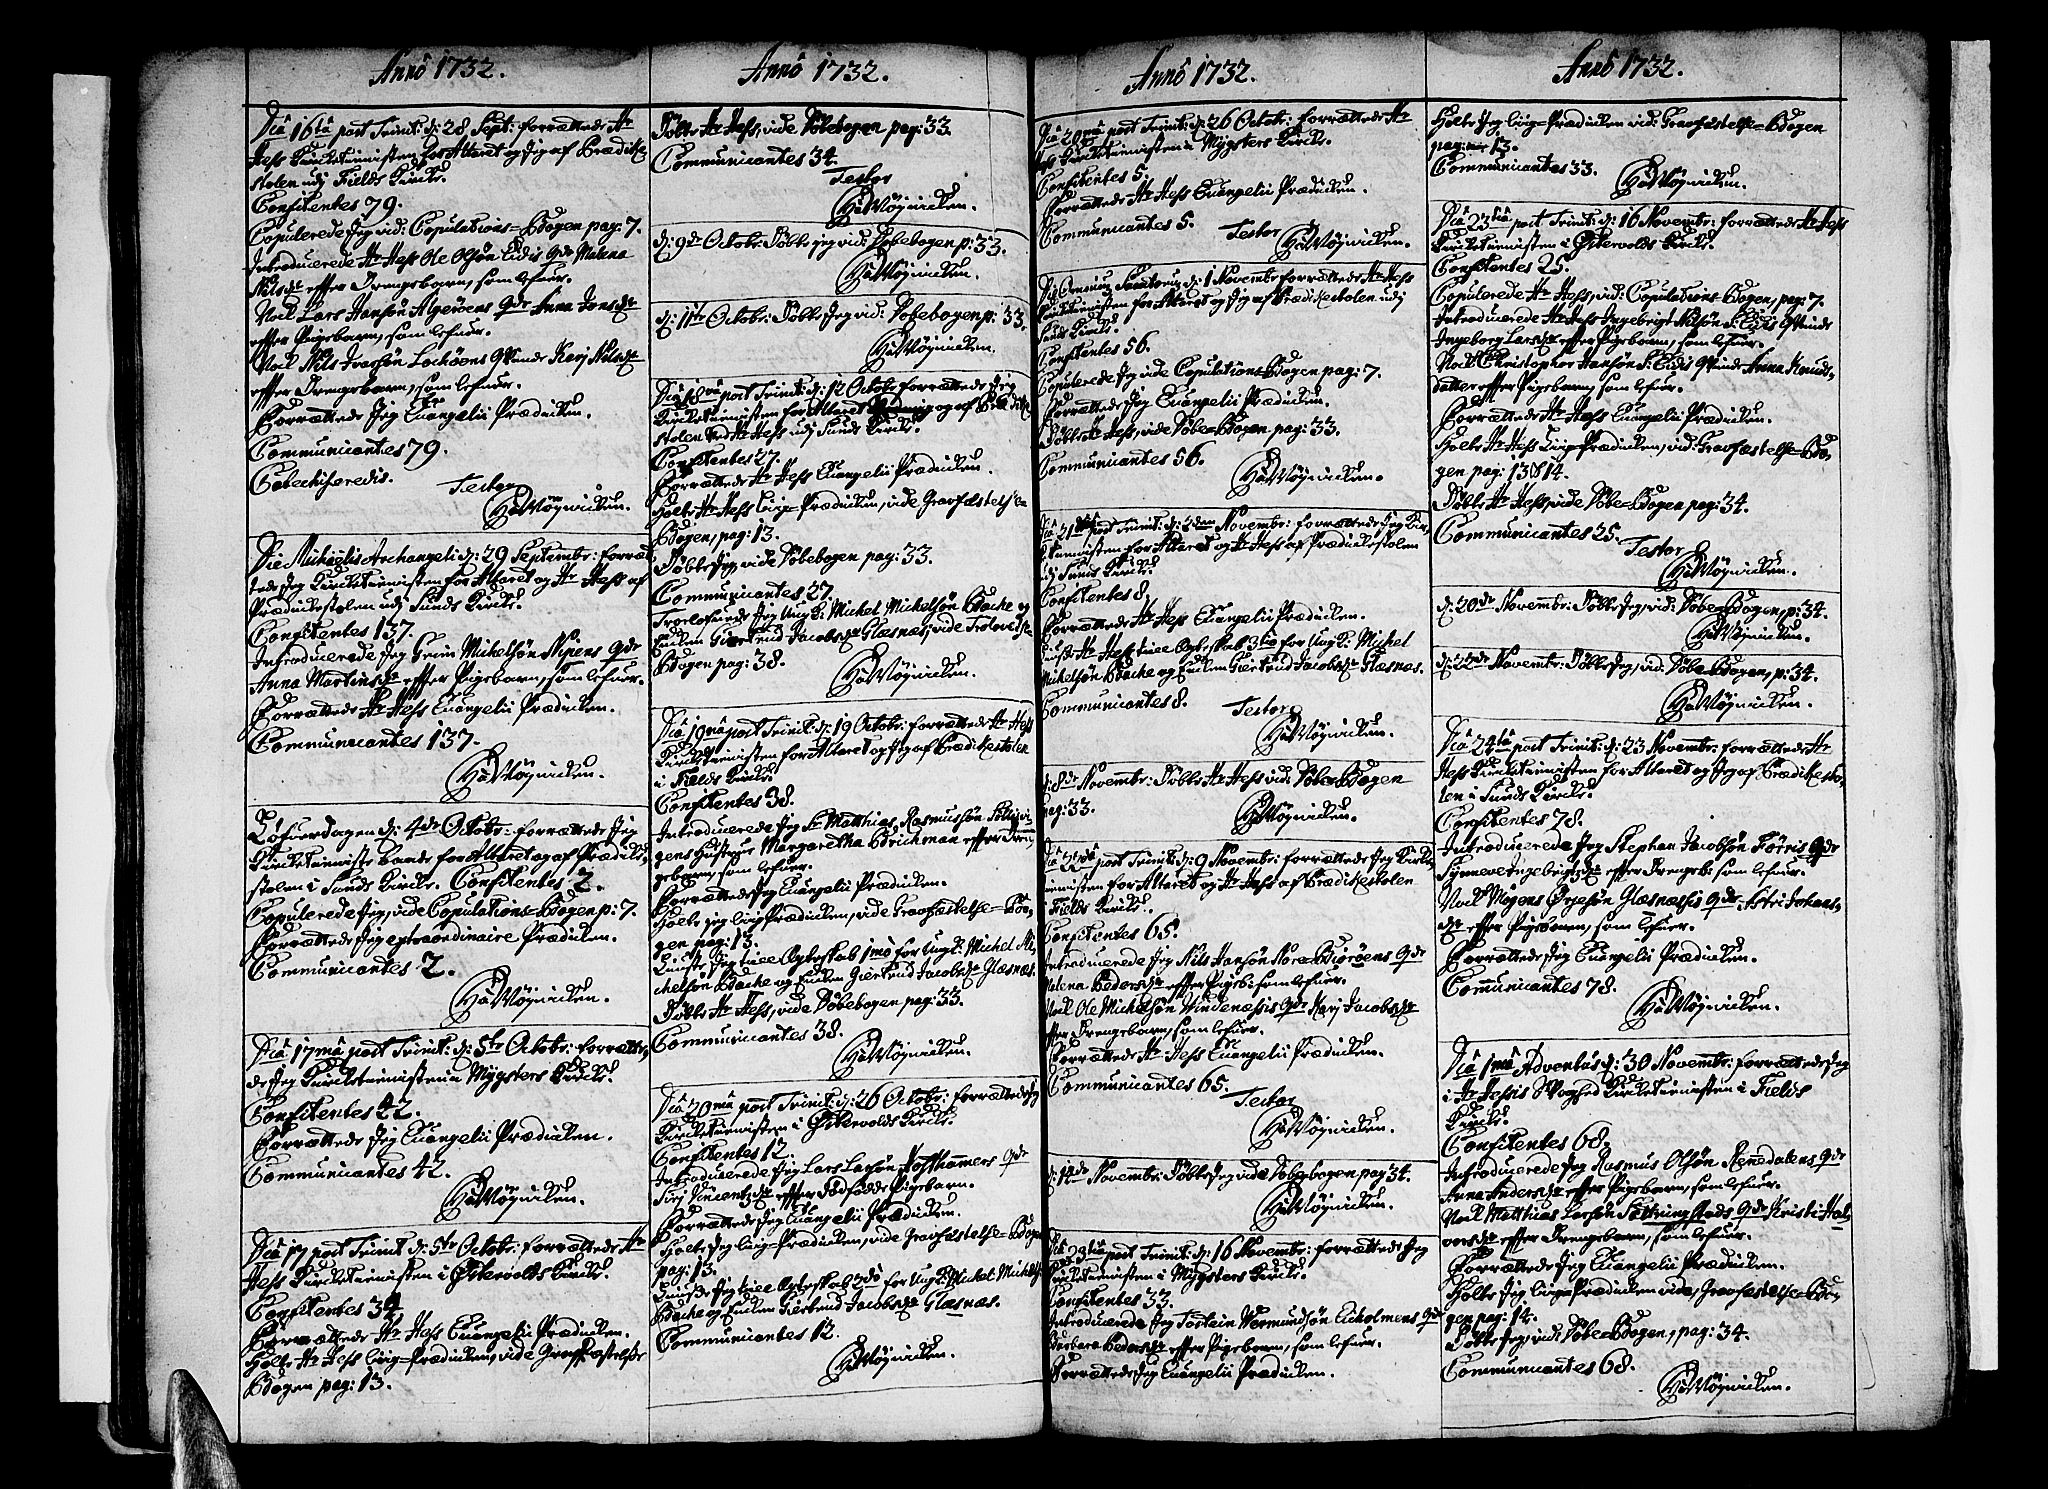 Anno 1732.
Diâ 16tâ post Trinit: d: 28 Sept: forrættede Hr
Hess Kircketienisten for Altaret og Jeg af Prædike
stolen udj Fields Kircke.
Confitentes 79.
Copulerede Jeg vid: Copulations=Bogen pag: 7.
Introducerede Hr Hess Ole Olsön Eidis Qde Malena
Nilsdtr effter Drengebarn, som lefuer.
Noch Lars Hansön Algeröens Qde Anna Jonsdtr
effter Pigebarn, som lefuer.
Noch Nils Iversön Lochöens Qvinde Karj Nilsdtr
effter Drengebarn, som lefuer.
Forrættede Jeg Euangelii Prædicken.
Communicantes 79.
Catechiseredis.
Testor
HaMöjnicken.
Die Michaelis Archangeli d: 29 Septembr: forræt
tede Jeg Kircketienisten for Altaret og Hr Hess af
Prædickestolen udj Sunds Kircke.
Confitentes 137.
Introducerede Jeg Grim Michelsön Nipens Qde
Anna Martinsdtr effter Pigebarn, som lefuer.
Forrættede Hr Hess Euangelii Prædicken.
Communicantes 137.
HaMöjnicken.
Löfuerdagen d: 4de Octobr: forrættede Jeg
Kircketieniste baade for Altaret og af Prædike
stolen i Sunds Kircke. Confitentes 2.
Copulerede Jeg, vide Copulations=Bogen p: 7.
Forrættede Jeg extraordinaire Prædicken.
Communicantes 2.
HaMöjnicken.
Diâ 17mâ post Trinit: d: 5te Octobr: forrætte
de Jeg Kircketienisten i Mygsters Kircke.
Confitentes 42.
Forrættede Jeg Euangelii Prædicken.
Communicantes 42.
HaMöjnicken.
Diâ 17 post Trinit d: 5te Octobr: forrættede Hr
Hess Kircketienisten i Östervolds Kircke.
Confitentes 34.
Forrættede Hr Hess Euangelii Prædicken.
Holte Hr Hess Liig=Prædicken, vide Graffæstelse
Bogen pag: 13.
Anno 1732.
Döbte Hr Hess, vide Döbebogen pag: 33.
Communicantes 34.
Testor
HaMöjnicken.
d: 9de Octobr: Döbte jeg vid: Dobebogen p: 33.
HaMöjnicken.
d: 11te Octobr: Döbte Jeg vid: Dobebogen p: 33.
HaMöjnicken.
Diâ 18vâ post Trinit: d: 12 Octobr forrættede Jeg
Kircketienisten for Altaret og af Prædike
stolen ved Hr Hess udj Sunds Kircke.
Confitentes 27.
Forrættede Hr Hess Euangelii Prædicken.
Holte Hr Hess Liig=Prædicken, vide Gravfæstelse
Bogen, pag: 13.
Döbte Jeg, vide Döbebogen pag: 33.
Communicantes 27.
Trolofuede Jeg Ung K: Michel Michelsön Bache og
Enken Giertrud Jacobsdtr Glæsnæs, vide Trolovelse
Bogen pag: 38.
HaMöjnicken.
Diâ 19nâ post Trinit: d: 19 Octobr: forrættede Hr Hess
Kircketienisten for Altaret og Jeg af Prædickestolen
i Fields Kircke.
Confitentes 38.
Introducerede Jeg Sr Matthias Rasmussön
gens Hustrue Margaretha Brichman effter Dren
gebarn, som lefuer.
Forrættede Jeg Euangelii Prædicken.
Holte jeg Liig Prædicken, vide Gravfæstelse=Bo
gen pag: 13.
Liuste Jeg till Egteskab 1mô for Ung K: Michel Mi
chelsön Bache og Enken Giertrud Jacobsdtr Glæsnæs.
Döbte Hr Hess, vide Döbebogen pag: 33.
Communicantes 38.
HaMöjnicken.
Diâ 20mâ post Trinit: d: 26 Octobr: forrættede Jeg
Kircketienisten i Östervolds Kircke.
Confitentes 12.
Introducerede Jeg Lars Larsön Hoffthamers Qde
Sirj Vincentzdtr effter Dödfödde Pigebarn.
Forrættede Jeg Euangelii Prædicken.
Holte Jeg Liig=Prædicken, vide Gravfæstelse=Bogen
pag: 13.
Liuste Jeg till Egteskab 2dô for Ung K: Michel Michels
Bache og Enken Giertrud Jacobsdtr Glæsnæs.
Communicantes 12.
HaMöjnicken.
Anno 1732.
Diâ 20mâ post Trinit: d: 26 Octobr: forrættede Hr
Hess Kircketienisten i Mygsters Kircke.
Confitentes 5.
Forrættede Hr Hess Euangelii Prædicken.
Communicantes 5.
Testor
HaMöjnicken.
Die Omnium Sanctorum d: 1 Novembr forrættede Hr Hess
Kircketienisten for Altaret og Jeg af Prædickestolen udj
Sunds Kircke.
Confitentes 56.
Copulerede Jeg vide Copulations=Bogen pag: 7.
Forrættede Jeg Euangelii Prædicken.
Döbte Hr Hess, vide Döbe=Bogen pag: 33.
Communicantes 56.
HaMöjnicken.
Diâ 21mâ post Trinit: d: 2den Novembr: forrættede Jeg Kir
ketienisten for Altaret og Hr Hess af Prædickestolen
udj Sunds Kircke.
Confitentes 8.
Forrættede Hr Hess Euangelii Prædicken.
Liuste Hr Hess till Egteskab 3tiô for Ung K: Michel
Michelsön Bache og Enken Giertrud Jacobsdtr Glæsnæs.
Communicantes 8.
Testor
HaMöjnicken.
d: 8de Novembr: Döbte Hr Hess vid: Döbe=Bogen
pag: 33.
HaMöjnicken.
Diâ 22dâ post Trinit: d: 9 Novembr: forrættede Jeg Kircke
tienisten for Altaret og Hr Hess af Prædickestolen
i Fields Kircke.
Confitentes 65.
Introducerede Jeg Nils Hansön Nore=Biöröens Qde
Malena Pedersdtr effter Pigeb: som lefuer.
Noch Ole Michelsön Windenæssis Qde Karj Jacobsdtr
effter Drengebarn, som lefuer.
Forrættede Hr Hess Euangelii Prædicken.
Communicantes 65.
Testor
HaMöjnicken.
d: 12de Novembr: Döbte Jeg vide Döbebogen pag 34.
HaMöjnicken.
Diâ 23tiâ post Trinit: d: 16 Novembr: forrættede Jeg
Kircketienisten i Mygsters Kircke.
Confitentes 33.
Introducerede Jeg Torstein Wermundsön Eickolmens Qde
Barbara Pedersdtr effter Pigebarn, som lefuer.
Forrættede Jeg Euangelii Prædicken.
Anno 1732.
Holte Jeg Liig=Prædicken vid: Gravfæstelse=Bogen
pag: 13.
Communicantes 33.
HaMöjnicken.
Diâ 23tiâ post Trinit: d: 16 Novembr: forrættede Hr Hess
Kircketienisten i Östervolds Kircke.
Confitentes 25.
Copulerede Hr Hess, vid: Copulations=Bogen, pag: 7.
Introducerede Hr Hess Ingebrigt Nilsön S: Eidis Qvinde
Ingeborg Larsdtr effter Pigebarn, som lefuer.
Noch Christopher Hansön S: Eidis Qvinde Anna Knuds
datter effter Pigebarn, som lefuer.
Forrættede Hr Hess Euangelii Prædicken.
Holte Hr Hess Liig=Prædicken, vid: Gravfæstelse=Bo
gen pag: 13 & 14.
Döbte Hr Hess, vide Döbe=Bogen pag: 34.
Communicantes 25.
Testor
HaMöjnicken.
d: 20de Novembr: Döbte Jeg, vid: Döbe=Bogen, p: 34.
HaMöjnicken.
d: 22de Novembr: Döbte Jeg, vid: Döbe=Bogen, p: 34.
HaMöjnicken.
Diâ 24tâ post Trinit: d: 23 Novembr: forrættede Hr
Hess Kircketienisten for Altaret og Jeg af Prædickesto
len i Sunds Kircke.
Confitentes 78.
Introducerede Jeg Stephan Jacobsön Förris Qde
Synneve Ingebrigtsdtr effter Drengeb: som lefuer.
Noch Mogens Örjesön Glæsnæssis Qde Astri Johans
dtr effter Pigebarn, som lefuer.
Forrættede Jeg Euangelii Prædicken.
Communicantes 78.
HaMöjnicken.
Diâ 1mâ Adventûs d: 30 Novembr: forrættede Jeg
i Hr Hessis Svaghed Kircketienisten i Fields
Kircke.
Confitentes 68.
Introducerede Jeg Rasmus Olsön Renedalens Qde
Anna Andersdtr effter Pigebarn, som lefuer.
Noch Matthias Larsön Tottringstads Qde Kristi Hal
vorsdtr effter Drengebarn, som lefuer.
Forrættede Jeg Euangelii Prædicken.
Holte Jeg Liig=Prædicken vide, Gravfæstelse=Bo
gen pag: 14.
Döbte Jeg, vid: Döbe=Bogen, pag: 34.
Communicantes 68.
HaMöjnicken.